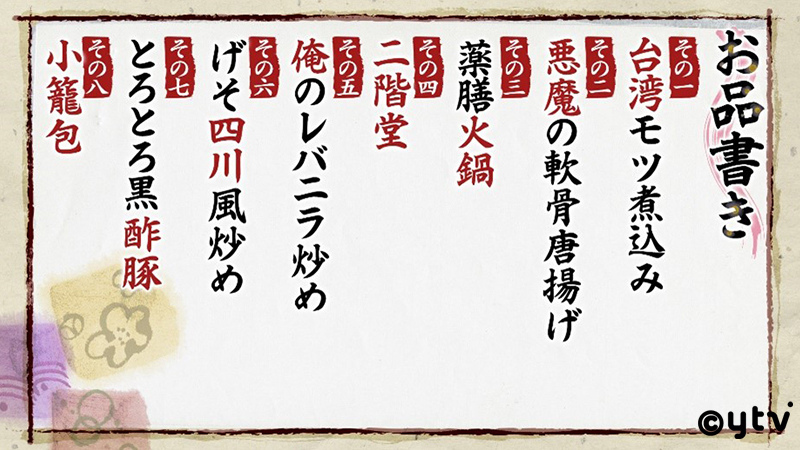 お品書き
その一
台湾モツ煮込み
その二
悪魔の軟骨唐揚げ
その三
薬膳火鍋
その四
二階堂
その五
俺のレバニラ炒め
その六
げそ四川風炒め
その七
とろとろ黒酢豚
その八
小籠包
©ytv